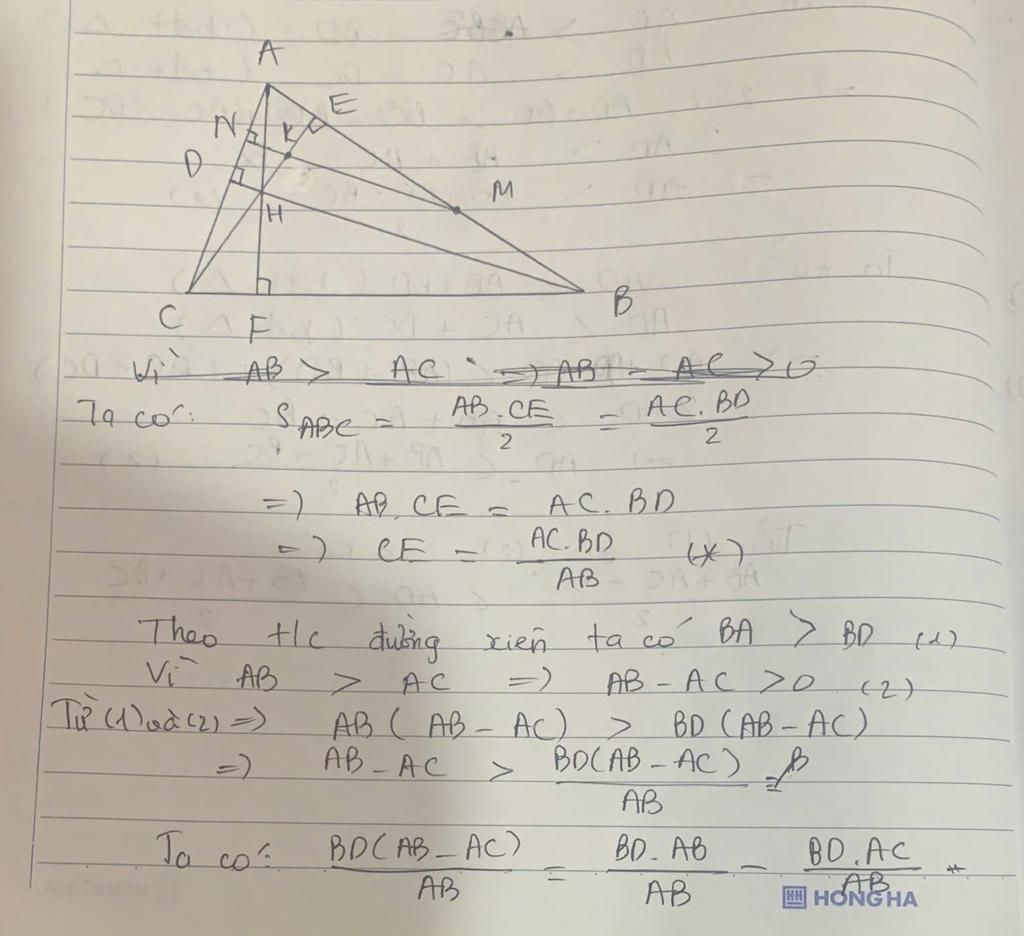 A
E
N
K
D
M
H
C
F
B
Vì AB > AC => AB - AC > 0
Ta có: S ABC = AB.CE / 2 = AC.BD / 2
=> AB.CE = AC.BD
=> CE = AC.BD / AB (*)
Theo t/c đường xiên ta có BA > BD (1)
Vì AB > AC => AB - AC > 0 (2)
Từ (1) và (2) => AB ( AB - AC) > BD (AB - AC)
=> AB - AC > BD(AB - AC) / AB
Ta có: BD(AB - AC) / AB = BD.AB / AB - BD.AC / AB
HH HONG HA